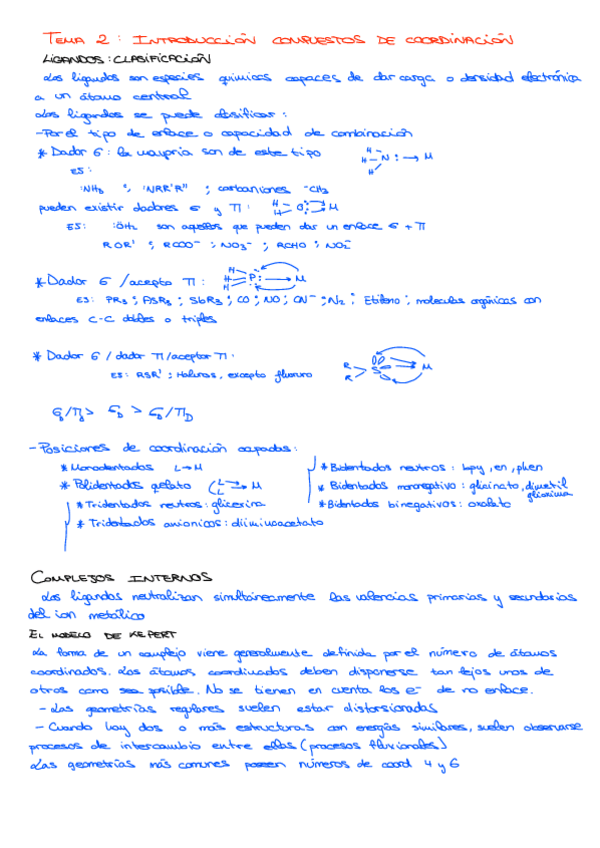 TEMA 2: INTRODUCCIÓN COMPUESTOS DE COORDINACIÓN
LIGANDOS: CLASIFICACIÓN
Los ligandos son especies químicas capaces de dar carga o densidad electrónica
a un átomo central
Los ligandos se puede clasificar:
-Por el tipo de enlace o capacidad de combinación
* Dador σ: la mayoría son de este tipo
H- H-N: → M H
ES:
:NH3 ; :NRR'R'' ; carbaniones -CH3
pueden existir dadores σ y π: H H O: → M
ES: :ÖH2 son aquellos que pueden dar un enlace σ + π
ROR' ; RCOO- ; NO3- ; RCHO ; NO2-
* Dador σ /acepto π: H- H- H P: → M
ES: PR3 ; ASR3 ; SbR3 ; CO ; NO ; CN- ; N2 ; Etileno ; moleculas orgánicas con
enlaces C-C dobles o triples
* Dador σ / dador π /aceptor π: R R S → M
ES: RSR' ; Haluros, excepto fluoruro
-Posiciones de coordinación ocupadas:
* Monodentados L→M
* Bidentados neutros: bipy, en, phen
* Polidentados quelato (L L → M
* Bidentados mononegativo: glicinato, dimetil
glioxima
* Tridentados neutros: glicerina
* Bidentados binegativos: oxalato
* Tridentados anionicos: diiminoacetato
COMPLEJOS INTERNOS
Los ligandos neutralizan simultáneamente las valencias primarias y secundarias
del ion metálico
EL MODELO DE KEPERT
La forma de un complejo viene generalmente definida por el número de átomos
coordinados. Los átomos coordinados deben disponerse tan lejos unos de
otros como sea posible. No se tienen en cuenta los e- de no enlace.
- Las geometrías regulares suelen estar distorsionadas
- Cuando hay dos o más estructuras con energías similares, suelen observarse
procesos de intercambio entre ellas (procesos fluxionales)
Las geometrías más comunes poseen números de coord 4 y 6